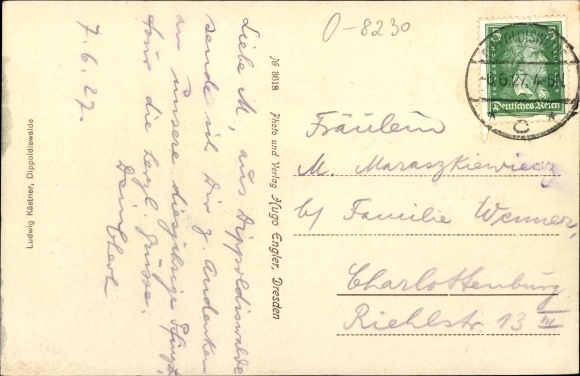 O-8230
7.6.27.
Liebe M, aus Dippoldiswalde
sende ich Dir z. Andenken
an unsere diesjährige Pfingst
tour die herzl. Grüsse.
Dein
Ludwig Kästner, Dippoldiswalde
№ 3618 Photo und Verlag Hugo Engler, Dresden
5
DIPPOLDISWALDE
-8.6.27.4-5N
Deutsches Reich
* c *
Fräulein
M. Maraszkiewicz
b/ Familie Wenner,
Charlottenburg
Riehlstr. 13 III